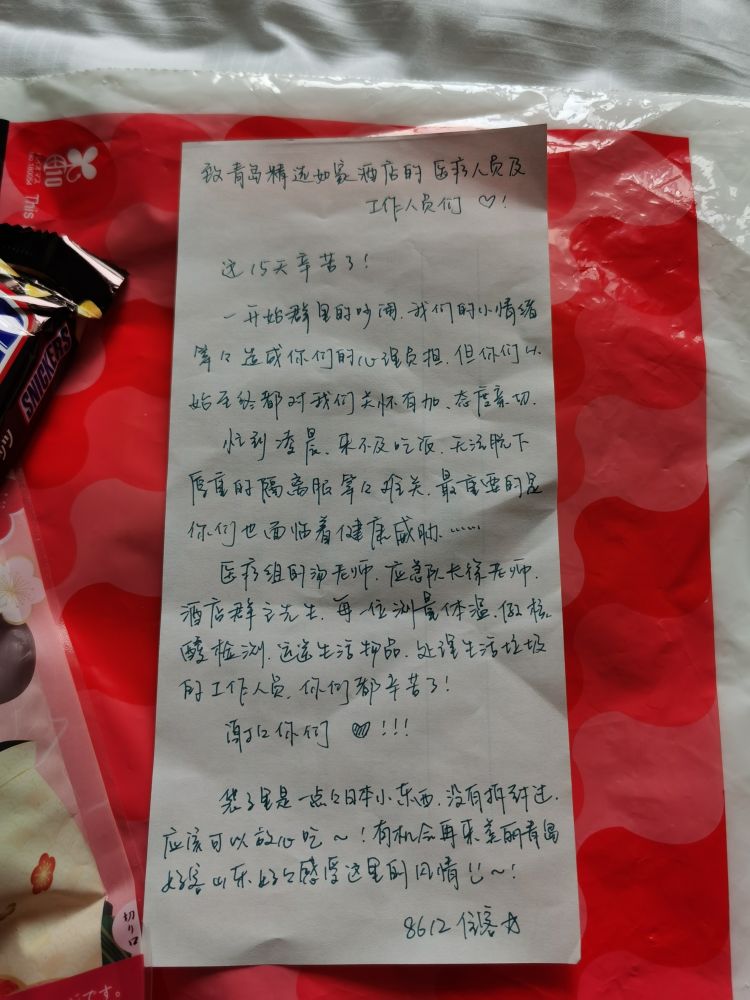 致青岛精选如家酒店的医疗人员及
工作人员们♡!
这15天辛苦了!
一开始群里的吵闹,我们的小情绪
等々造成你们的心理负担,但你们从
始至终都对我们关怀有加、态度亲切.
忙到凌晨、来不及吃饭、无法脱下
厚重的隔离服等々难关,最重要的是
你们也面临着健康威胁……
医疗组的汤老师、应急队长徐老师、
酒店群主先生、每一位测量体温、做核
酸检测、运送生活物品、处理生活垃圾
的工作人员,你们都辛苦了!
谢々你们♡!!!
袋子里是一点々日本小东西,没有拆封过,
应该可以放心吃~!有机会再来美丽青岛
好客山东好々感受这里的风情!!~!
8612住客
SNICKERS
This
切り口
です。